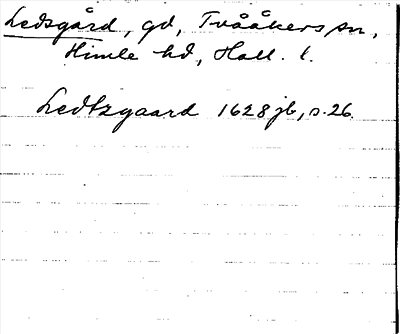 Ledsgård, gd, Tvååkers sn,
Himle hd, Hall. l.
Ledtzgaard 1628 jb, s. 26.